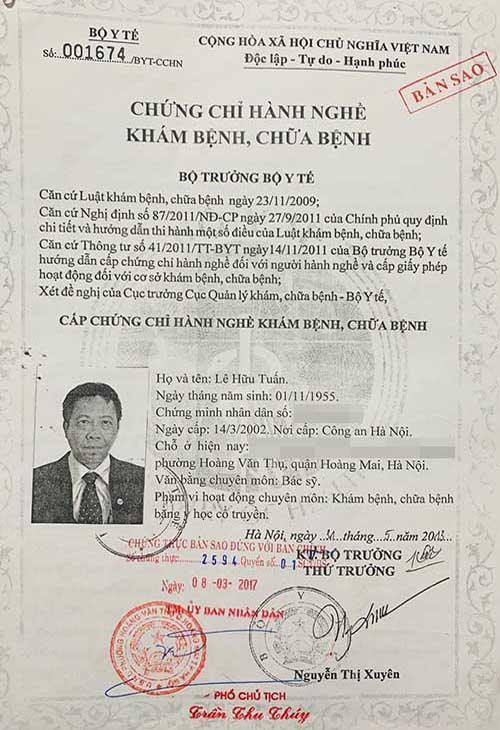 BỘ Y TẾ
Số: 001674 /BYT-CCHN
CỘNG HÒA XÃ HỘI CHỦ NGHĨA VIỆT NAM
Độc lập - Tự do - Hạnh phúc
BẢN SAO
CHỨNG CHỈ HÀNH NGHỀ
KHÁM BỆNH, CHỮA BỆNH
BỘ TRƯỞNG BỘ Y TẾ
Căn cứ Luật khám bệnh, chữa bệnh ngày 23/11/2009;
Căn cứ Nghị định số 87/2011/NĐ-CP ngày 27/9/2011 của Chính phủ quy định
chi tiết và hướng dẫn thi hành một số điều của Luật khám bệnh, chữa bệnh;
Căn cứ Thông tư số 41/2011/TT-BYT ngày14/11/2011 của Bộ trưởng Bộ Y tế
hướng dẫn cấp chứng chỉ hành nghề đối với người hành nghề và cấp giấy phép
hoạt động đối với cơ sở khám bệnh, chữa bệnh;
Xét đề nghị của Cục trưởng Cục Quản lý khám, chữa bệnh - Bộ Y tế,
CẤP CHỨNG CHỈ HÀNH NGHỀ KHÁM BỆNH, CHỮA BỆNH
Họ và tên: Lê Hữu Tuấn.
Ngày tháng năm sinh: 01/11/1955.
Chứng minh nhân dân số:
Ngày cấp: 14/3/2002. Nơi cấp: Công an Hà Nội.
Chỗ ở hiện nay:
phường Hoàng Văn Thụ, quận Hoàng Mai, Hà Nội.
Văn bằng chuyên môn: Bác sỹ.
Phạm vi hoạt động chuyên môn: Khám bệnh, chữa bệnh
bằng y học cổ truyền.
Hà Nội, ngày tháng 5 năm
CHỨNG THỰC BẢN SAO ĐÚNG VỚI BẢN CHÍNH
Số chứng thực: 2594 Quyển số: 01 SCT/BS
KT. BỘ TRƯỞNG
THỨ TRƯỞNG
Ngày: 08-03-2017
TM. ỦY BAN NHÂN DÂN
Nguyễn Thị Xuyên
PHÓ CHỦ TỊCH
Trần Thu Thúy